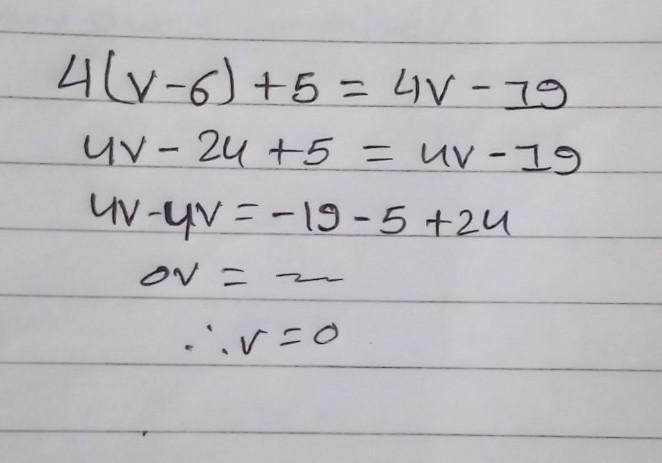 4(v-6)+5 = 4v-19
4v-24+5 = 4v-19
4v-4v = -19-5+24
0v =
∴v=0